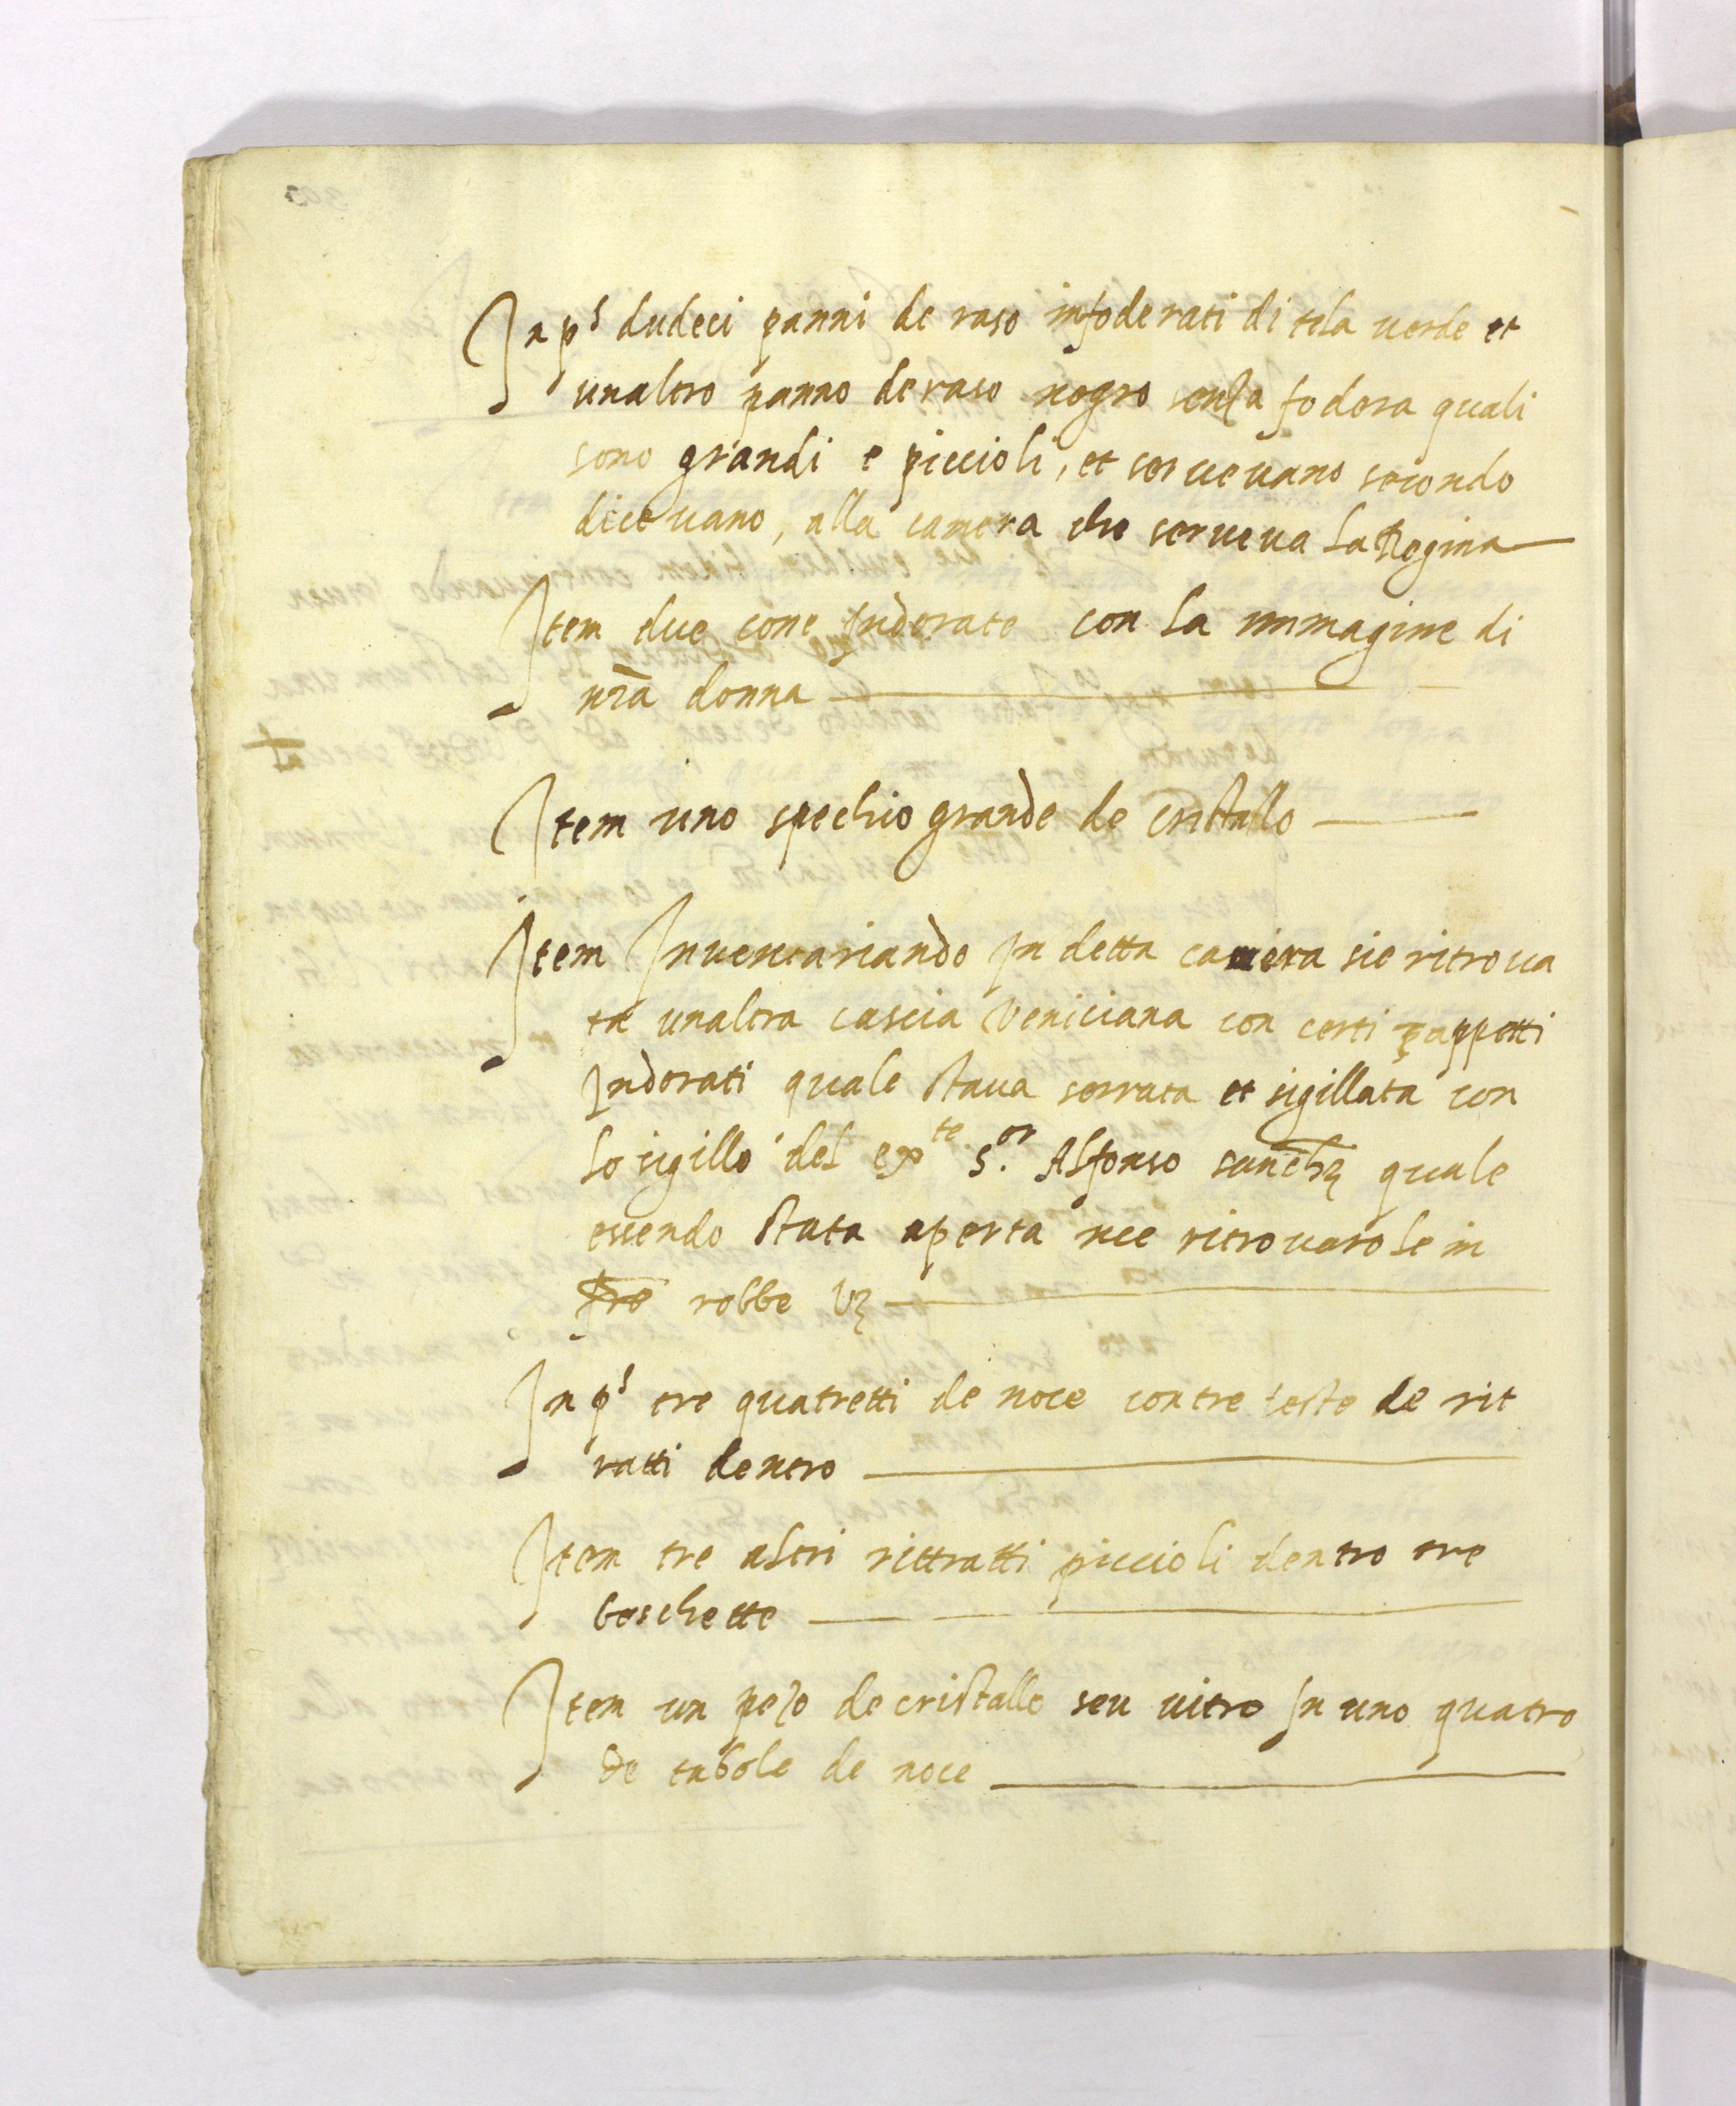 In p.s dudeci panni de raso infoderati di tela uerde et
unaltro panno de raso negro senza fodera quali
sono grandi e piccioli, et serueuano secondo
diceuano, alla camera che serueua la Regina
Item due cone Indorate con la immagine di
nr̃a donna
Item uno spechio grande de Cristallo
Item Inuentariando In detta camera sie ritroua
ta unaltra cascia Veniciana con certi zappetti
Indorati quale staua serrata et sigillata con
lo sigillo del ex.te S.or Alfonso sanchz quale
essendo stata aperta nce ritrouaro le in
fr̃e robbe Vz
In p.s tre quatretti de noce con tre teste de rit
ratti dentro
Item tre altri rittratti piccioli dentro tre
boschette
Item un pezo de cristallo seu uitro In uno quatro
de tabole de noce